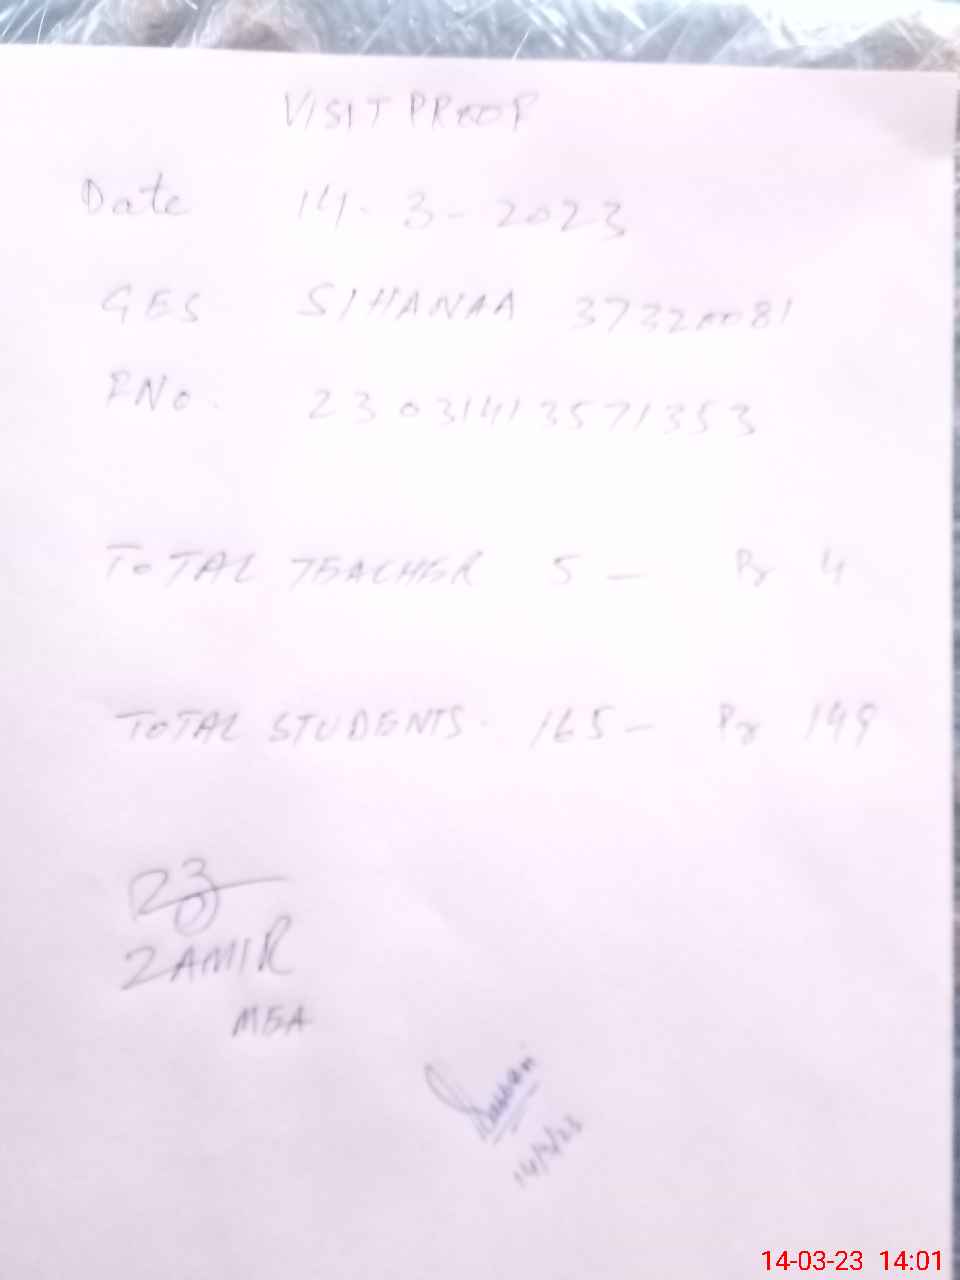 VISIT PROOF
Date 14-3-2023
GES SIHANAA 37320081
RNo. 23031413571353
TOTAL TEACHER 5 - Pr 4
TOTAL STUDENTS. 165 - Pr 149
ZAMIR
MEA
14/3/23
14-03-23 14:01